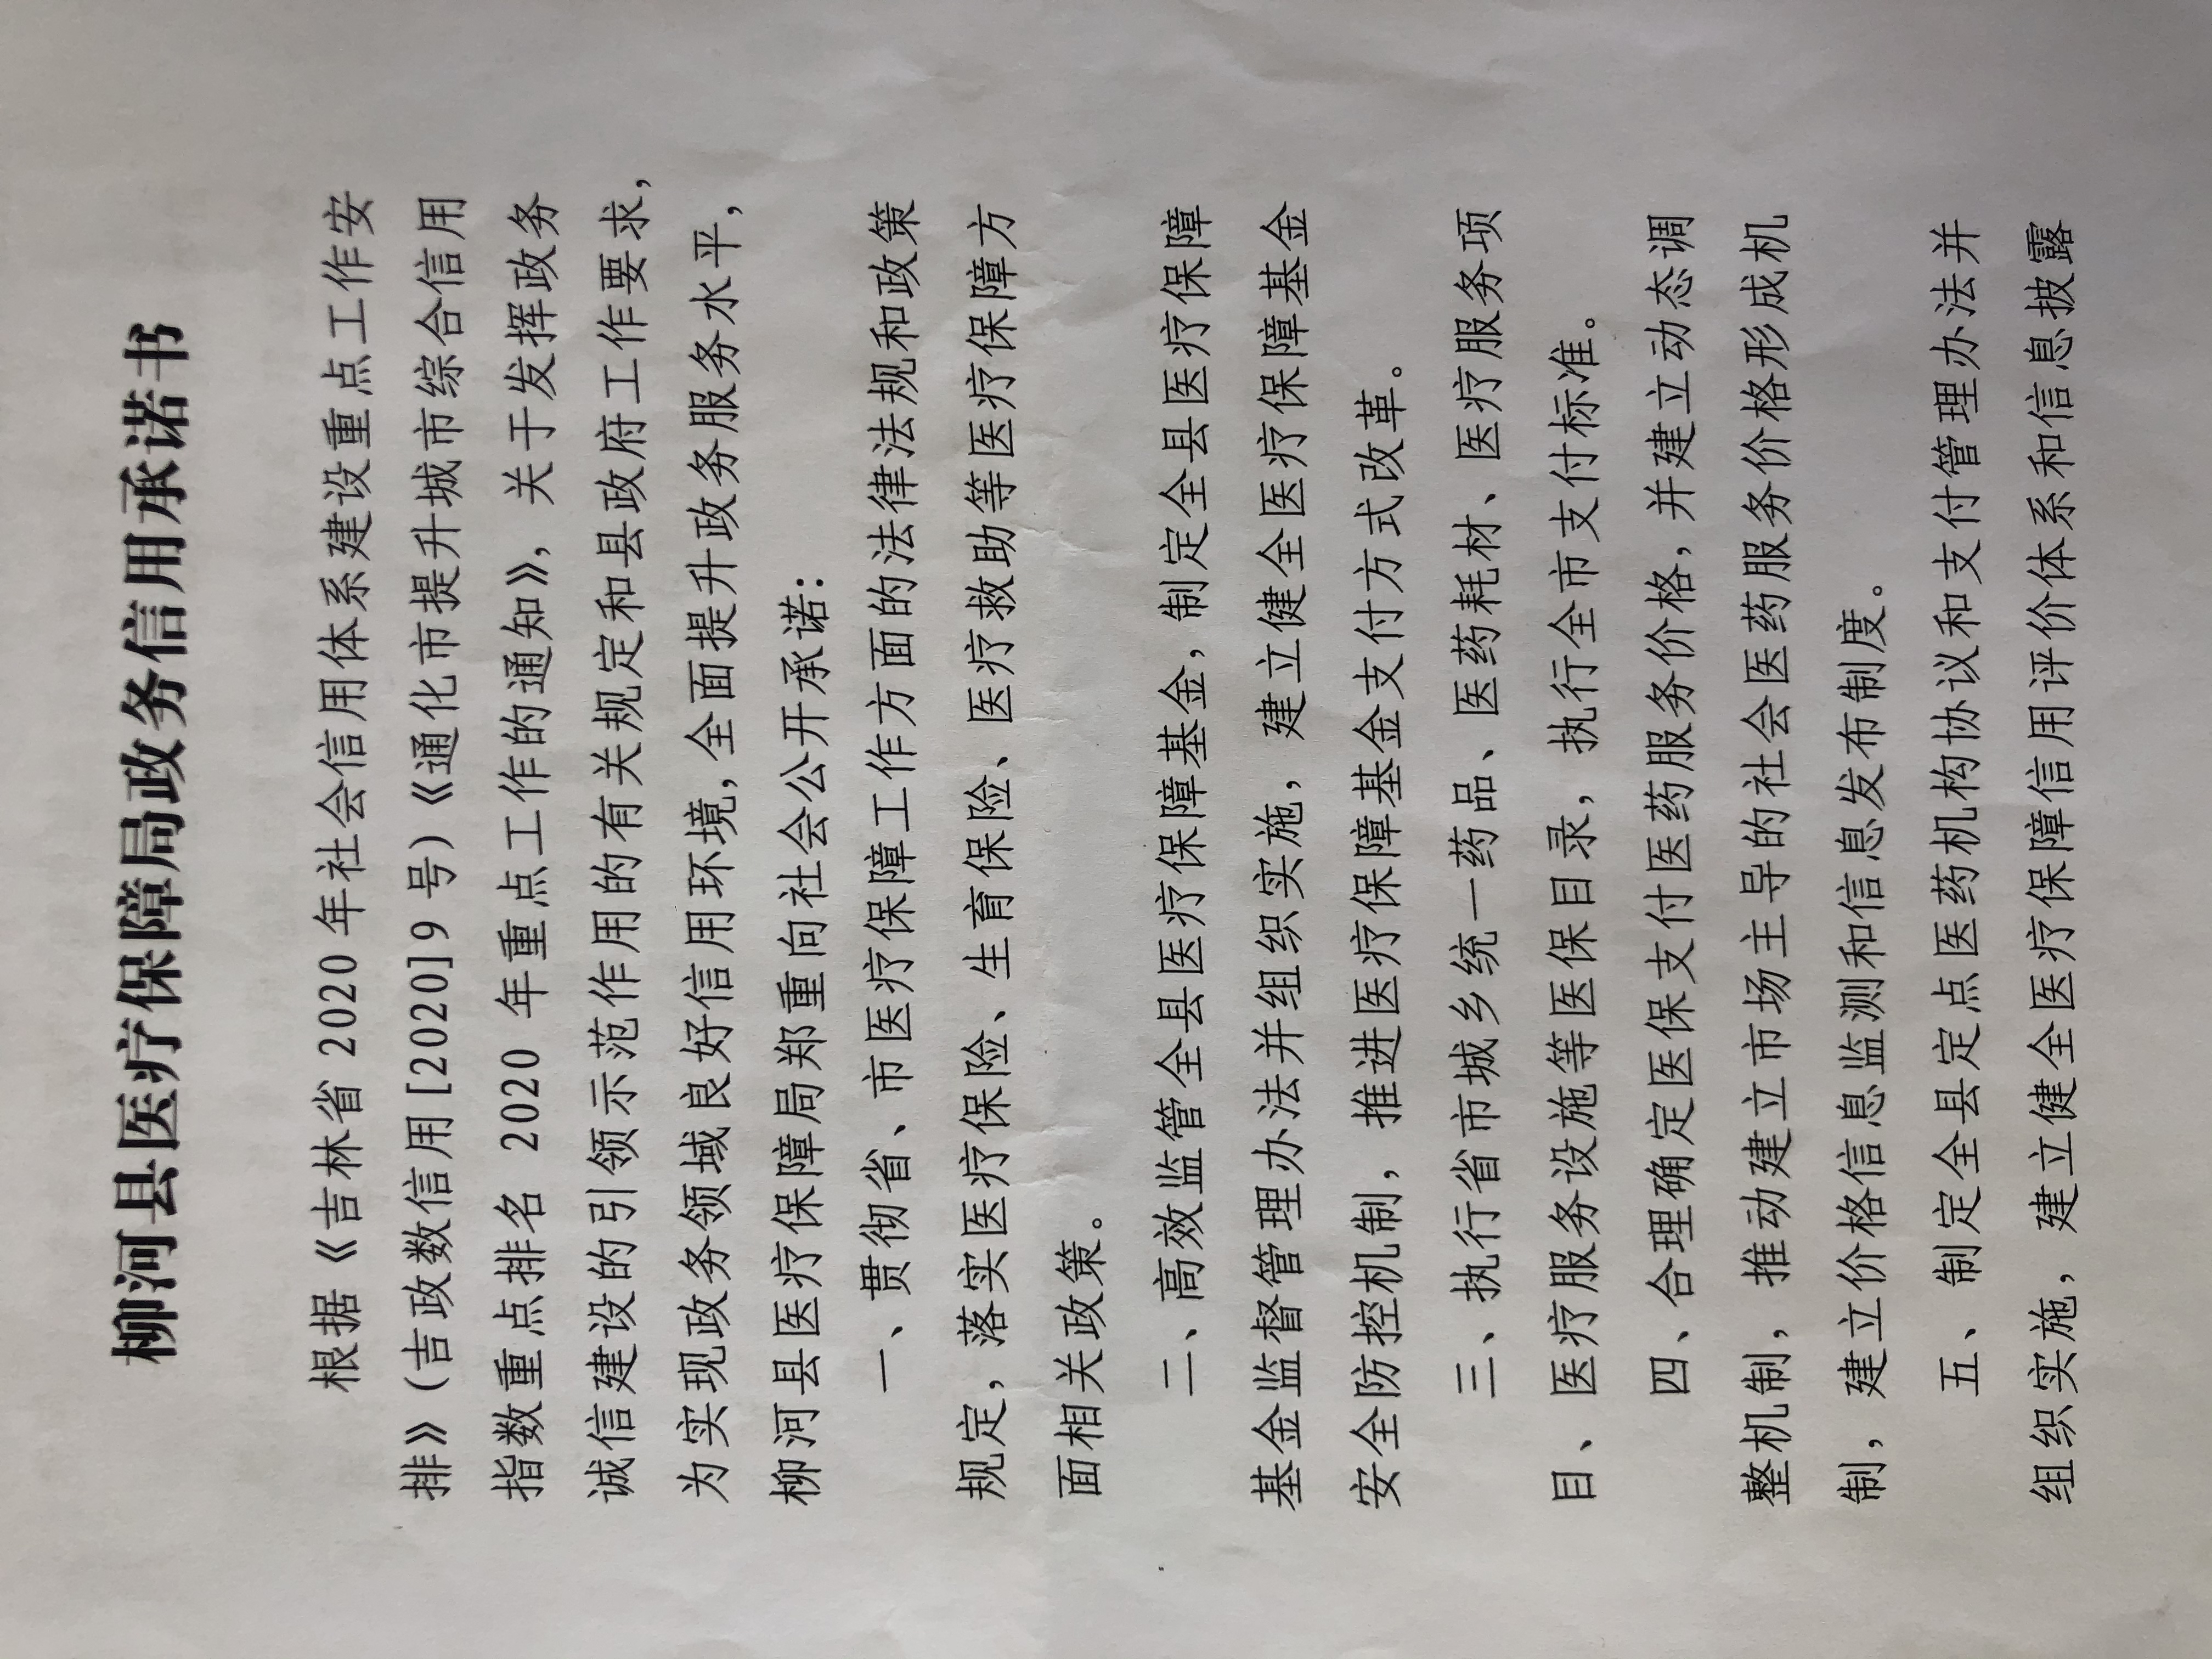 柳河县医疗保障局政务信用承诺书
根据《吉林省2020年社会信用体系建设重点工作安
排》（吉政数信用[2020]9号）《通化市提升城市综合信用
指数重点排名 2020 年重点工作的通知》，关于发挥政务
诚信建设的引领示范作用的有关规定和县政府工作要求，
为实现政务领域良好信用环境，全面提升政务服务水平，
柳河县医疗保障局郑重向社会公开承诺：
一、贯彻省、市医疗保障工作方面的法律法规和政策
规定，落实医疗保险、生育保险、医疗救助等医疗保障方
面相关政策。
二、高效监管全县医疗保障基金，制定全县医疗保障
基金监督管理办法并组织实施，建立健全医疗保障基金
安全防控机制，推进医疗保障基金支付方式改革。
三、执行省市城乡统一药品、医药耗材、医疗服务项
目、医疗服务设施等医保目录，执行全市支付标准。
四、合理确定医保支付医药服务价格，并建立动态调
整机制，推动建立市场主导的社会医药服务价格形成机
制，建立价格信息监测和信息发布制度。
五、制定全县定点医药机构协议和支付管理办法并
组织实施，建立健全医疗保障信用评价体系和信息披露